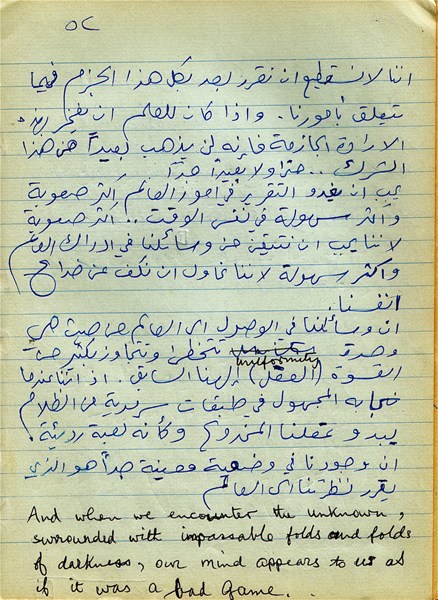 ٥٤
اننا لا نستطيع ان نقرر بعد بكل هذا الجزم فيما
يتعلق بأمورنا. واذا كان للعالم ان يفخر بهذه
الارادة الجازمة فإنه لن يذهب بعيداً عن هذا
الشرك .. حتى ولا بعيداً جداً
يجب ان يغدو التقرير في امور العالم أكثر صعوبة
وأكثر سهولة في نفس الوقت .. أكثر صعوبة
لاننا يجب ان نتيقن من وسائلنا في ادراك العالم
وأكثر سهولة لاننا نحاول ان نكف عن خداع
انفسنا.
ان وسائلنا في الوصول الى العالم من حيث هي
وحدة uniformity تتخطى وتتجاوز بكثير جداً
القوة (العقل) السابق. اذ اننا عندما
نجابه المجهول في طبقات سريرية من الظلام
يبدو عقلنا وكأنه لعبة رديئة.
ان وجودنا في وضعية معينة جداً هو الذي
يقرر نظرتنا الى العالم
And when we encounter the unknown,
surrounded with impassable folds and folds
of darkness, our mind appears to us as
if it was a bad game.